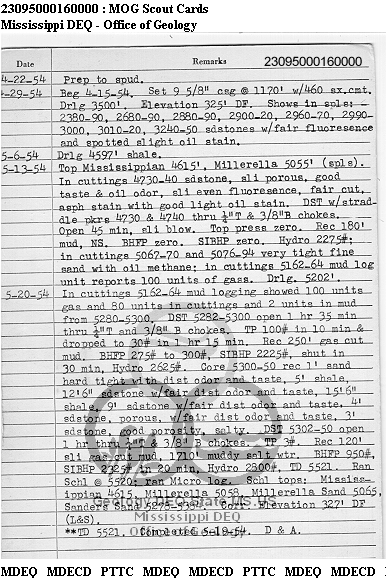 23095000160000 : MOG Scout Cards
Mississippi DEQ - Office of Geology
Date Remarks 23095000160000
4-22-54 Prep to spud.
4-29-54 Beg 4-15-54. Set 9 5/8" csg @ 1170' w/460 sx.cmt.
Drlg 3500'. Elevation 325' DF. Shows in spls: -
2380-90, 2680-90, 2880-90, 2900-20, 2960-70, 2990-
3000, 3010-20, 3240-50 sdstones w/fair fluoresence
and spotted slight oil stain.
5-6-54 Drlg 4597' shale.
5-13-54 Top Mississippian 4615', Millerella 5055' (spls).
In cuttings 4730-40 sdstone, sli porous, good
taste & oil odor, sli even fluoresence, fair cut,
asph stain with good light oil stain. DST w/strad-
dle pkrs 4730 & 4740 thru ¼"T & 3/8"B chokes.
Open 45 min, sli blow. Top press zero. Rec 180'
mud, NS. BHFP zero. SIBHP zero. Hydro 2275#;
in cuttings 5067-70 and 5076-94 very tight fine
sand with oil methane; in cuttings 5162-64 mud log
unit reports 100 units of gas. Drlg. 5202'.
5-20-54 In cuttings 5162-64 mud logging showed 100 units
gas and 80 units in cuttings and 2 units in mud
from 5280-5300. DST 5282-5300 open 1 hr 35 min
thru ¼"T and 3/8" B chokes. TP 100# in 10 min &
dropped to 30# in 1 hr 15 min. Rec 250' gas cut
mud. BHFP 275# to 300#, SIBHP 2225#, shut in
30 min, Hydro 2625#. Core 5300-50 rec 1' sand
hard tight with dist odor and taste, 5' shale,
12'6" sdstone w/fair dist odor and taste, 15'6"
shale, 9' sdstone w/fair dist odor and taste, 4'
sdstone, porous, w/fair dist odor and taste, 3'
sdstone, good porosity, salty. DST 5302-50 open
1 hr thru ¼" & 3/8" B chokes. TP 3#. Rec 120'
sli gas cut mud, 1710' muddy salt wtr. BHFP 950#,
SIBHP 2325# in 20 min, Hydro 2800#, TD 5521. Ran
Schl @ 5520; ran Micro log. Schl tops: Missis-
sippian 4615, Millerella 5058, Millerella Sand 5065,
Sanders Sand 5275-5354. Corr. Elevation 327' DF
(L&S).
Mississippi DEQ
**TD 5521. Completed 5-19-54. D & A.
MDEQ MDECD PTTC MDEQ MDECD PTTC MDEQ MDECD